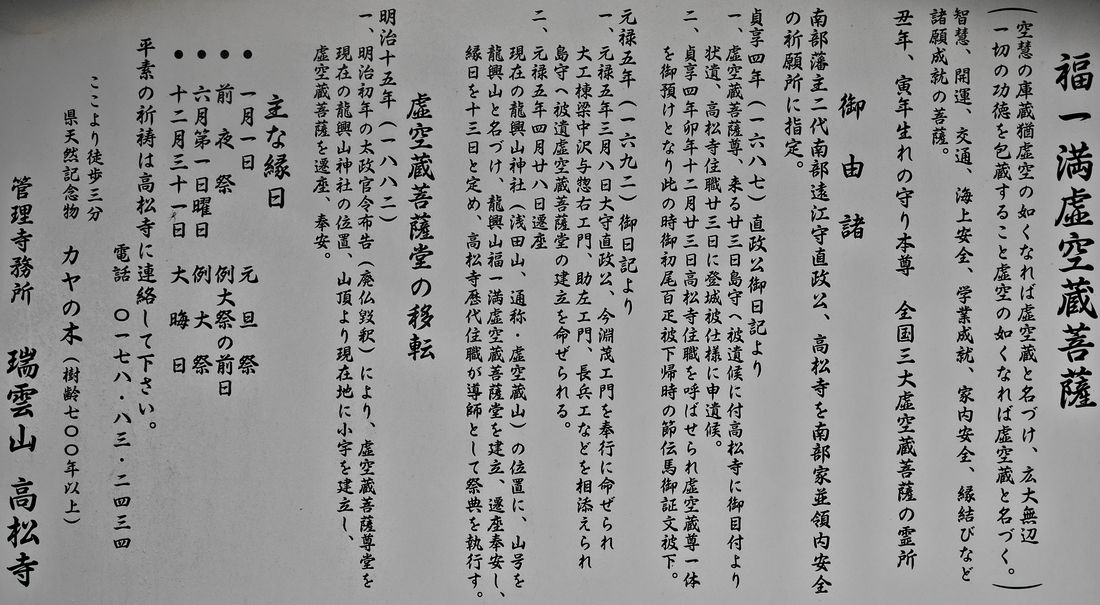 福一満虚空蔵菩薩
（空慧の庫蔵猶虚空の如くなれば虚空蔵と名づけ、広大無辺
一切の功徳を包蔵すること虚空の如くなれば虚空蔵と名づく。）
智慧、開運、交通、海上安全、学業成就、家内安全、縁結びなど
諸願成就の菩薩。
丑年、寅年生れの守り本尊　全国三大虚空蔵菩薩の霊所
御由諸
南部藩主二代南部遠江守直政公、高松寺を南部家並領内安全
の祈願所に指定。
貞享四年（一六八七）直政公御日記より
一、虚空蔵菩薩尊、来る廿三日島守へ被遺候に付高松寺に御目付より
状遺、高松寺住職廿三日に登城被仕様に申遺候。
二、貞享四年卯年十二月廿三日高松寺住職を呼ばせられ虚空蔵尊一体
を御預けとなり此の時御初尾百疋被下帰時の節伝馬御証文被下。
元禄五年（一六九二）御日記より
一、元禄五年三月八日大守直政公、今淵茂エ門を奉行に命ぜられ
大工棟梁中沢与惣右エ門、助左エ門、長兵エなどを相添えられ
島守へ被遺虚空蔵菩薩堂の建立を命ぜられる。
二、元禄五年四月廿八日遷座
現在の龍興山神社（浅田山、通称・虚空蔵山）の位置に、山号を
龍興山と名づけ、龍興山福一満虚空蔵菩薩堂を建立、遷座奉安し、
縁日を十三日と定め、高松寺歴代住職が導師として祭典を執行す。
虚空蔵菩薩堂の移転
明治十五年（一八八二）
一、明治初年の太政官令布告（廃仏毀釈）により、虚空蔵菩薩尊堂を
現在の龍興山神社の位置、山頂より現在地に小宇を建立し、
虚空蔵菩薩を遷座、奉安。
主な縁日
●　一月一日　元旦祭
●　前夜祭　例大祭の前日
●　六月第一日曜日　例大祭
●　十二月三十一日　大晦日
平素の祈祷は高松寺に連絡して下さい。
電話　〇一七八・八三・二四三四
ここより徒歩三分
県天然記念物　カヤの木（樹齢七〇〇年以上）
管理寺務所　瑞雲山　高松寺